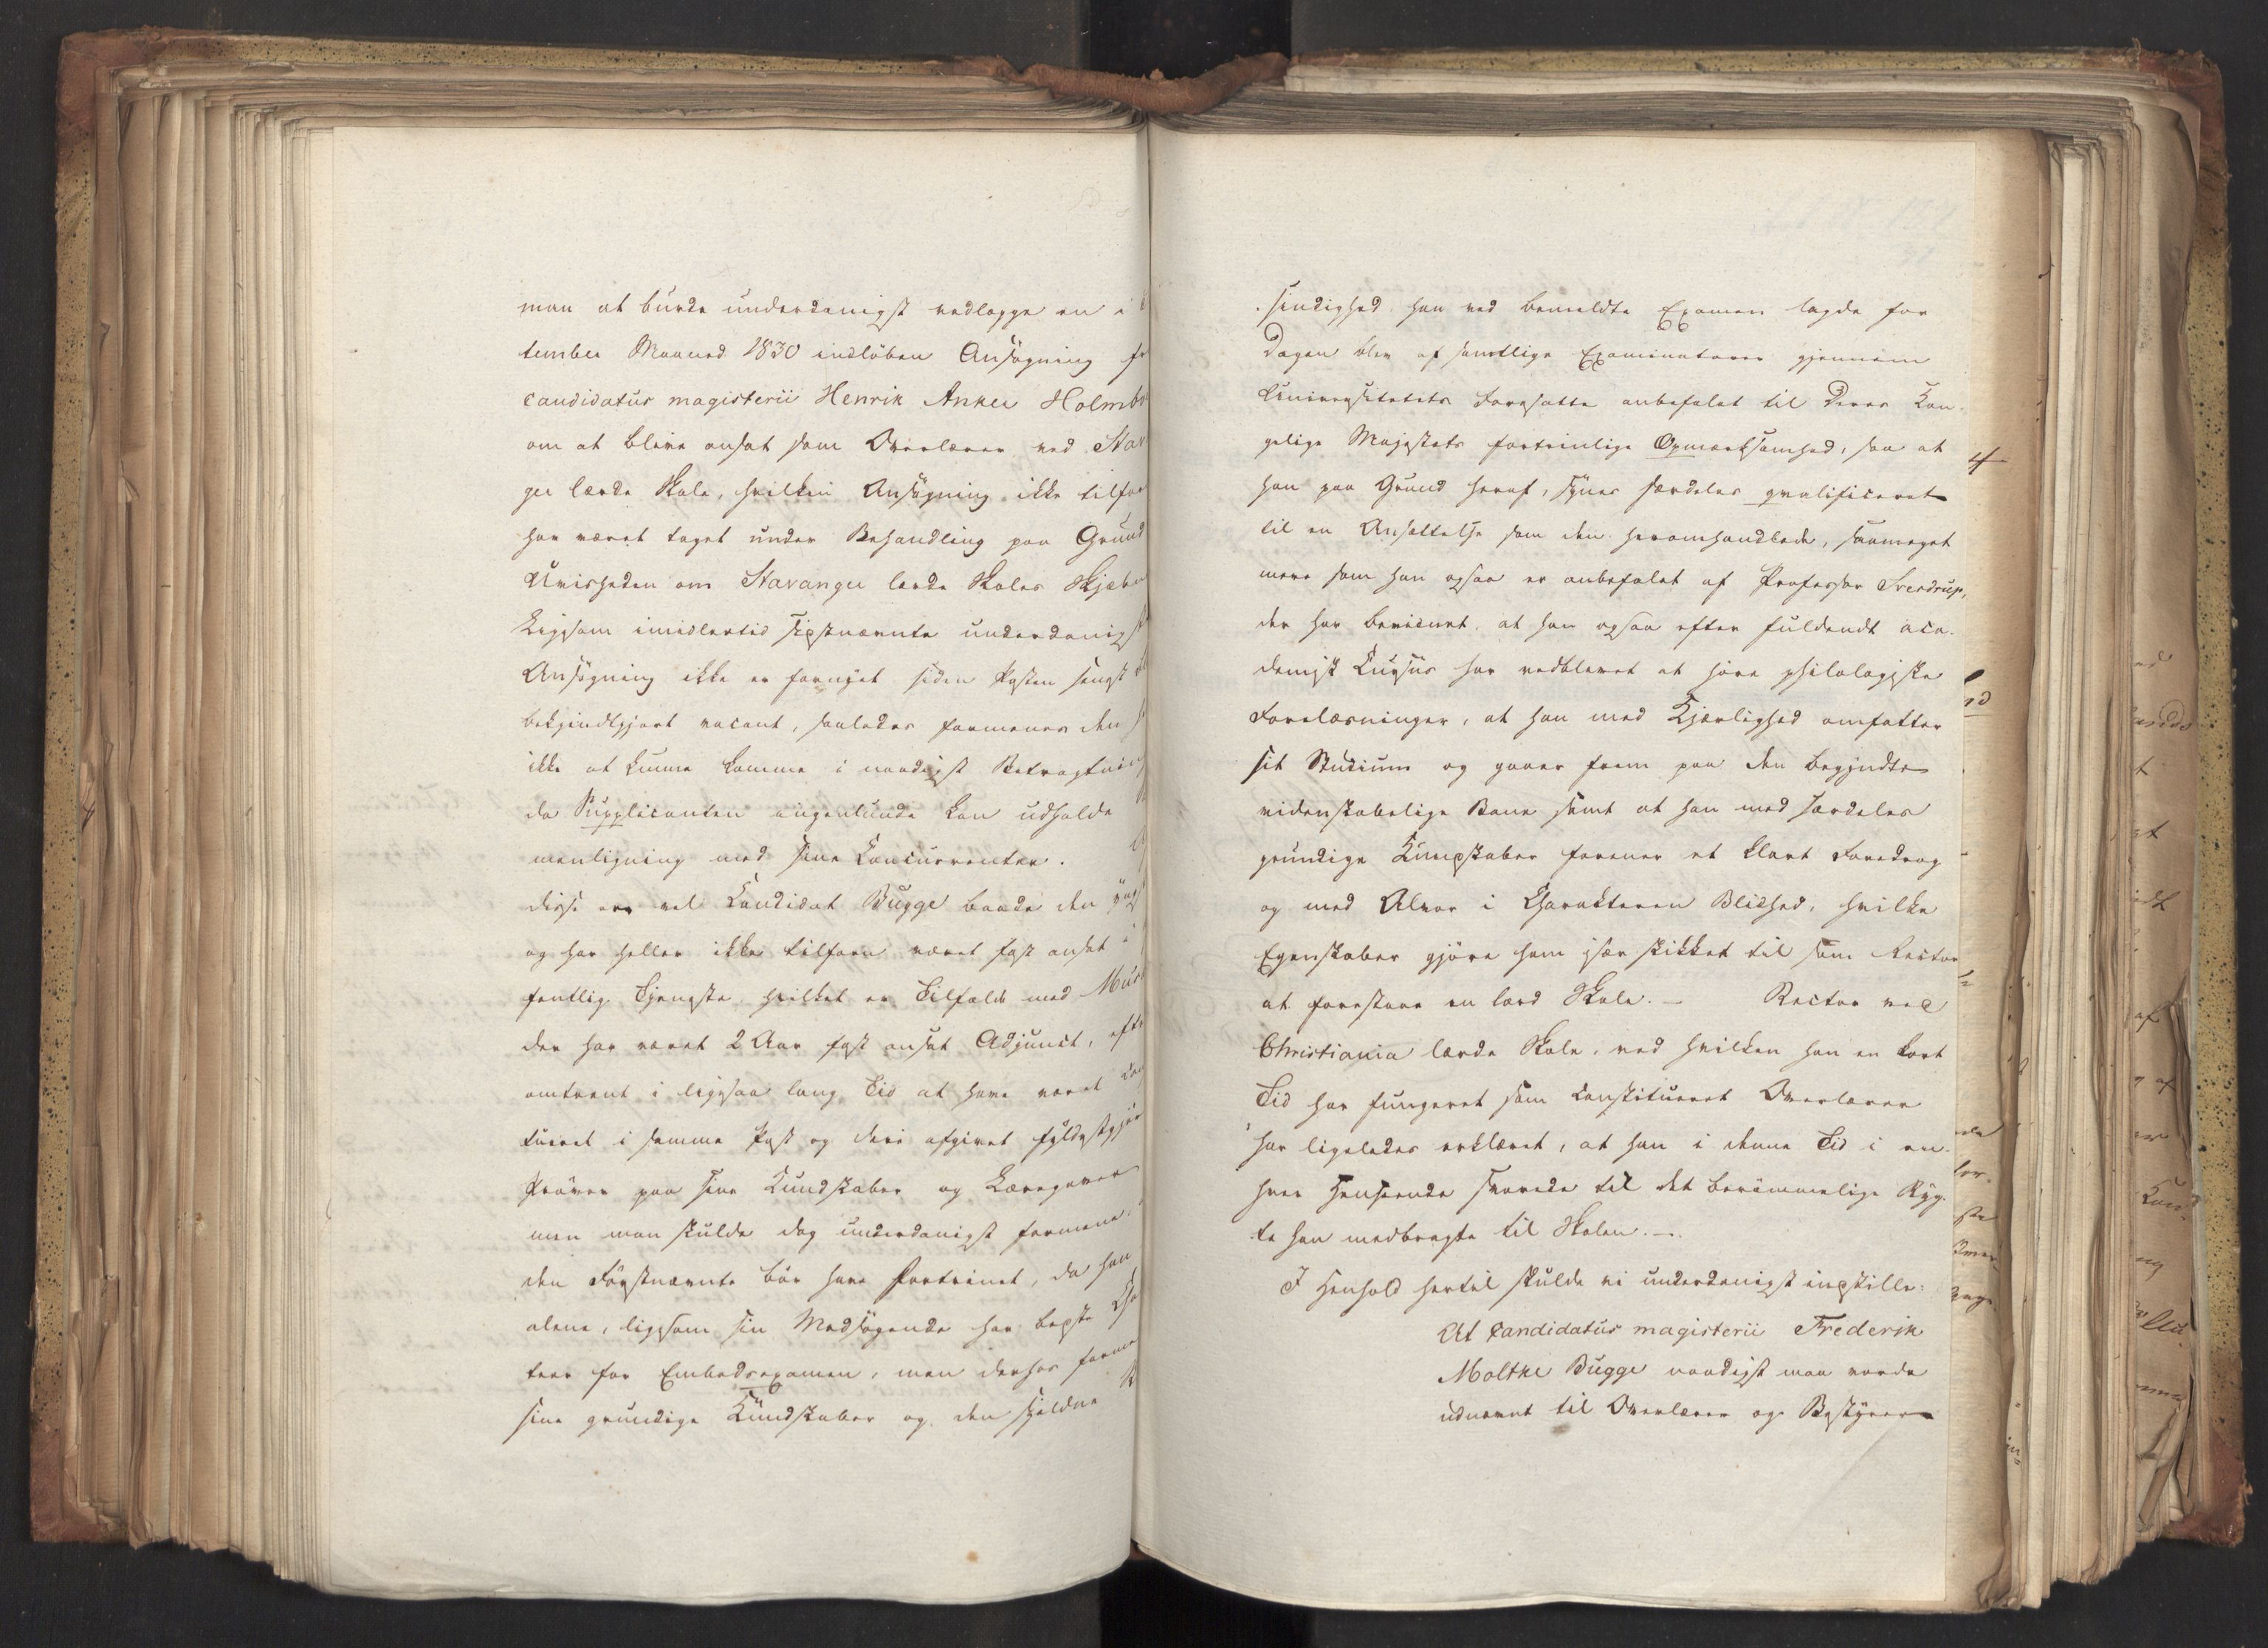 man at burde underdanigst vedlægge en i
tember Maaned 1830 indløben Ansøgning fr
candidatus magisterii Henrik Anker Holmbo
om at blive ansat som Overlærer ved Stav
ger lærde Skole, hvilken Ansøgning ikke tilfor
har været taget under Behandling paa Grund
Uvisheden om Stavanger lærde Skoles Skjæbn
Ligesom imidlertid sidstnævnte underdanigst
Ansøgning ikke er fornyet siden Posten sengst
bekjendtgjort vacant, saaledes formenes den
ikke at kunne komme i naadigst Betragtning
da Supplicanten ingenlunde kan udholde
menligning med sine Concurrenter.
disse er vel Candidat Bugge baade den yngst
og har heller ikke tilforn været fast ansat i
fentlig Tjeneste hvilket er Tilfælde med
der har været 2 Aar fast ansat Adjunct, efte
omtrent i ligesaa lang Tid at have været con
tueret i samme Post og deri afgivet fyldestgjør
Prøver paa sine Kundskaber og Læregaver
men man skulde dog underdanigst formene
den Førstnævnte bør have Fortrinet, da han
alene, ligesom sin Medsøgende har bedste Cha
teer for Embedsexamen, men derhos forme
sine grundige Kundskaber og den sjeldne
sindighed han ved bemeldte Examen lagde for
Dagen blev af samtlige Examinatorer gjennem
Universitetets Foresatte anbefalet til Deres Kon-
gelige Majestæts fortrinlige Opmærksomhed, saa at
han paa Grund heraf, synes særdeles qvalificeret
til en Ansættelse som den heromhandlede, saameget
mere som han ogsaa er anbefalet af Professor Sverdrup,
der har bevidnet at han ogsaa efter fuldendt aca-
demisk Cursus har vedblevet at høre philologiske
Forelæsninger, at han med Kjærlighed omfatter
sit Studium og gaaer frem paa den begyndte
videnskabelige Bane samt at han med særdeles
grundige Kundskaber forener et klart Foredrag
og med Alvor i Charakteren Blidhed, hvilke
Egenskaber gjøre ham især skikket til som Rector
at forestaae en lærd Skole. – Rector ved
Christiania lærde Skole, ved hvilken han en kort
Tid har fungeret som constitueret Overlærer
har ligeledes erklæret, at han i denne Tid i en-
hver Henseende svarede til det berømmelige Ryg-
te han medbragte til Skolen. –
I Henhold hertil skulde vi underdanigst indstille:
At Candidatus magisterii Frederik
Moltke Bugge naadigst maa vorde
udnævnt til Overlærer og Bestyrer